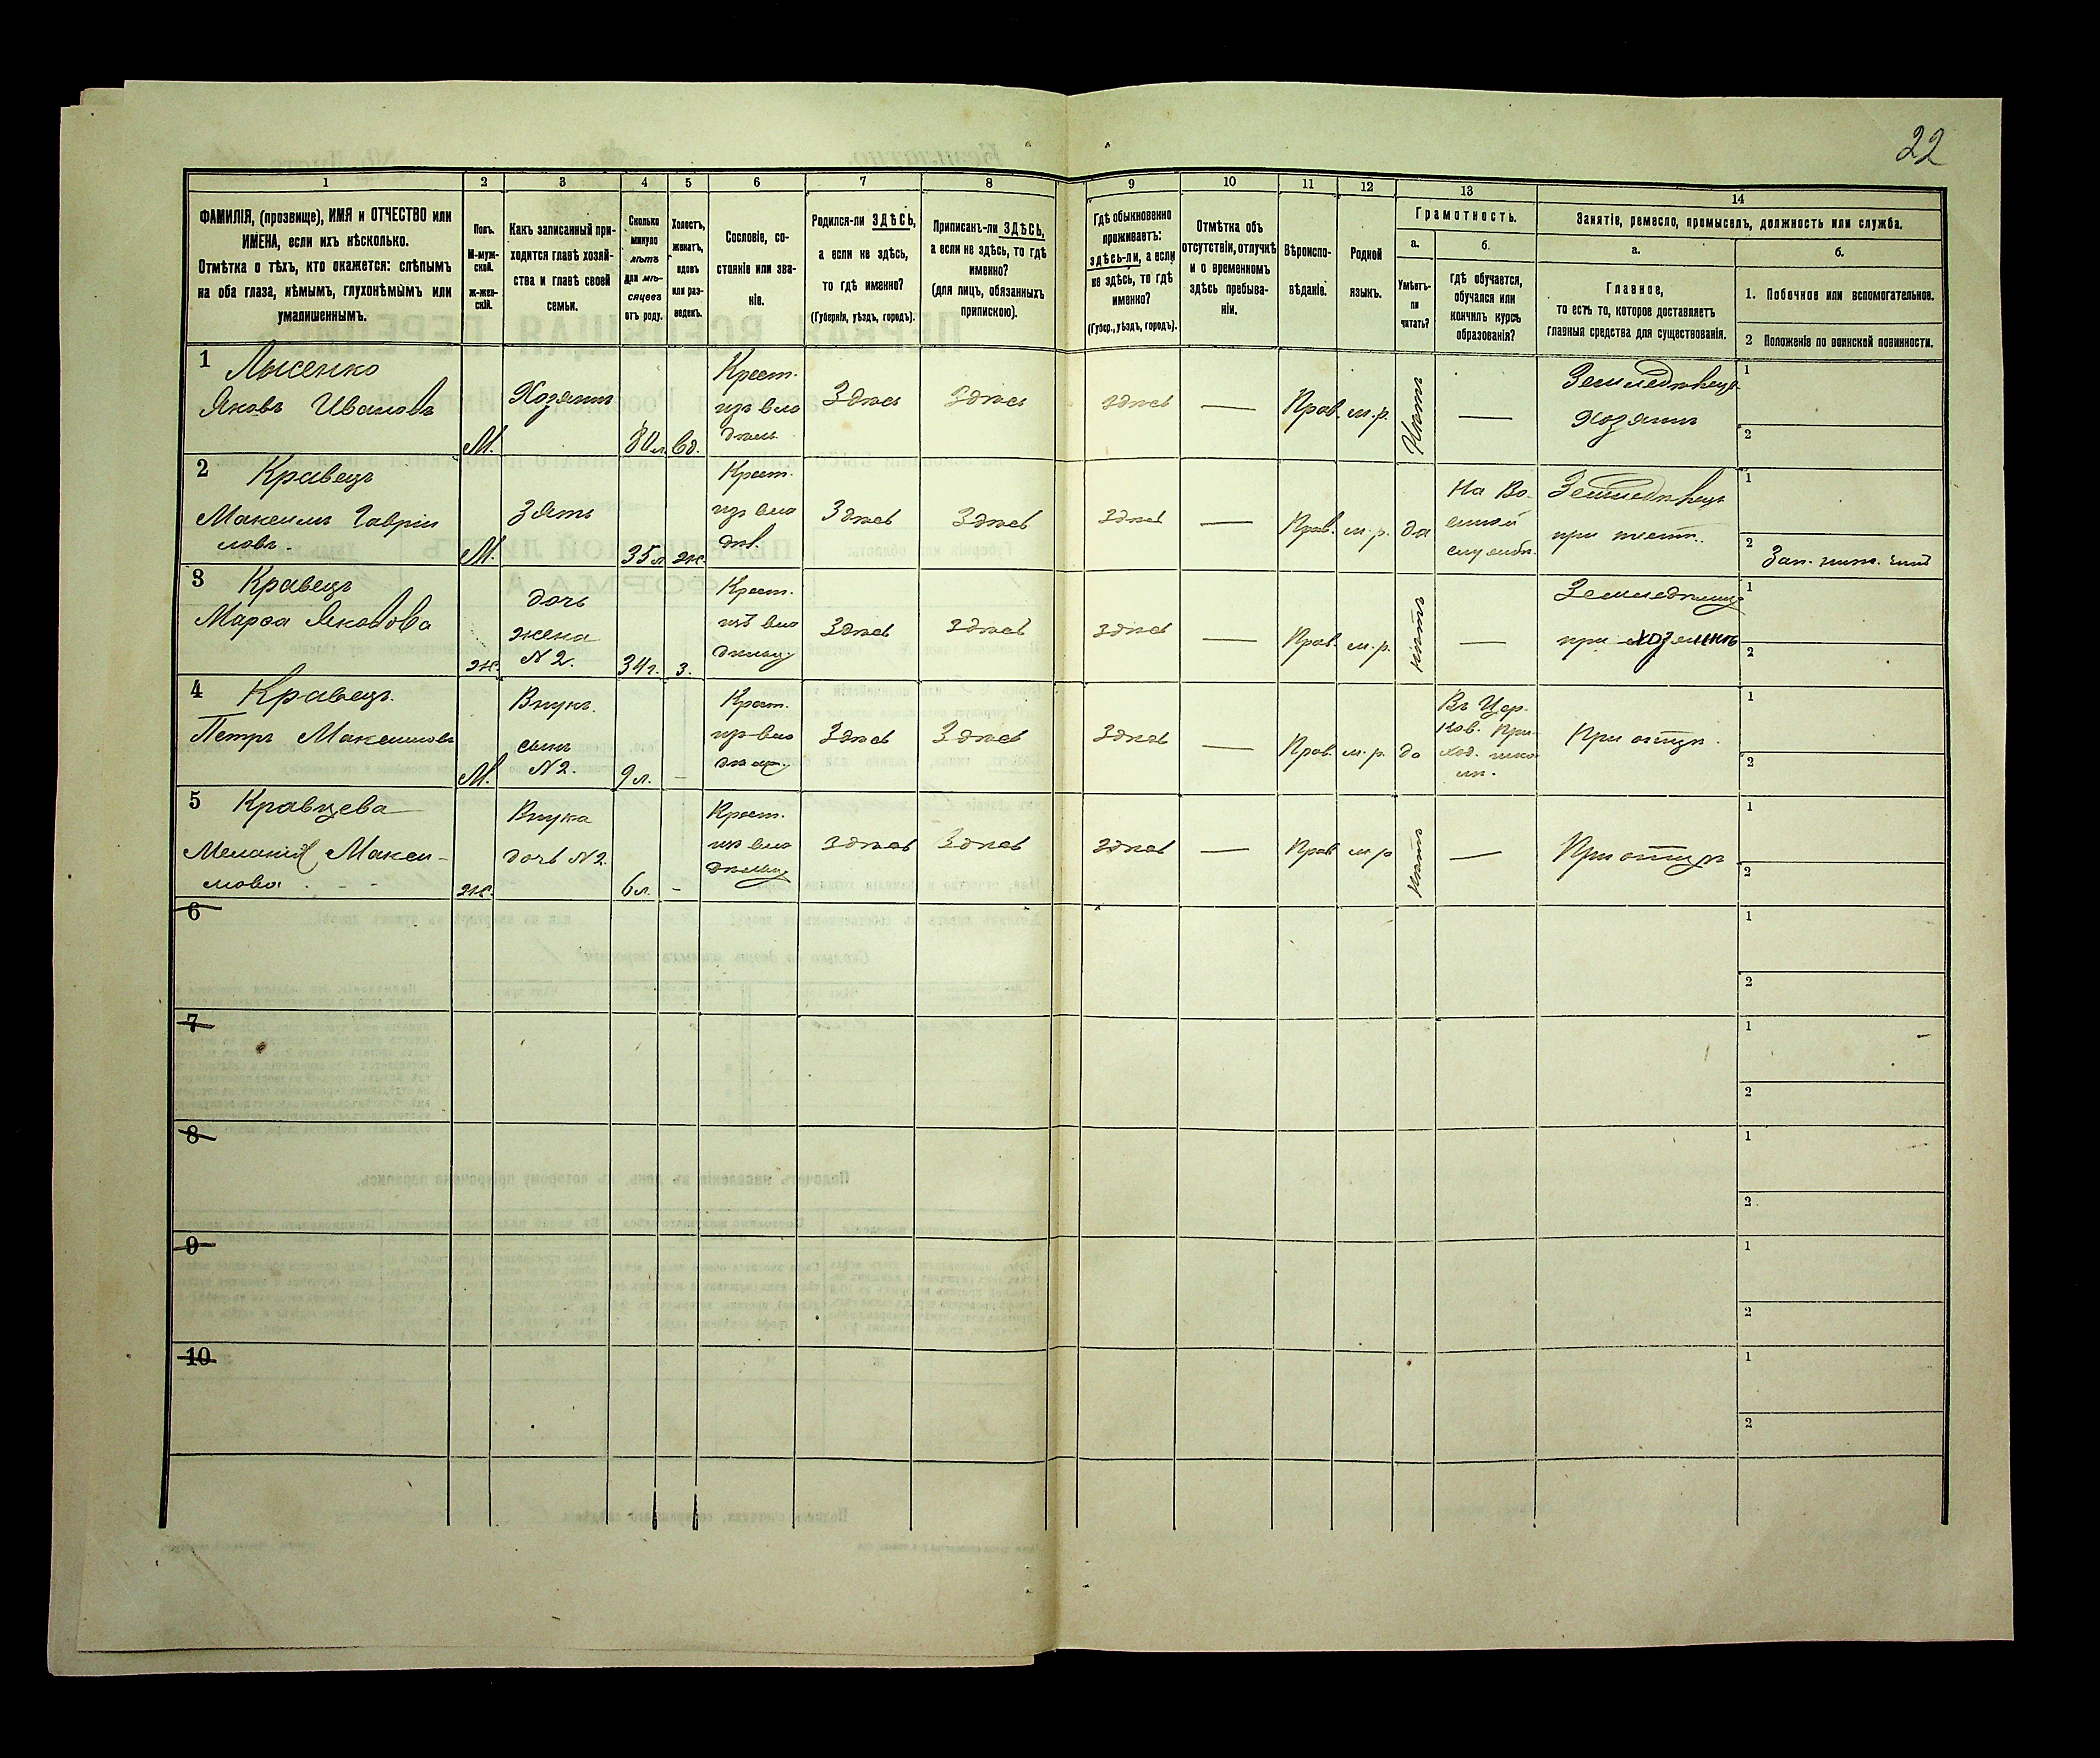 22
1 2 3 4 5 6 7 8 9 10 11 12 13 14
ФАМИЛІЯ, (прозвище), ИМЯ и ОТЧЕСТВО или
ИМЕНА, если ихъ нѣсколько.
Отмѣтка о тѣхъ, кто окажется: слѣпымъ
на оба глаза, нѣмымъ, глухонѣмымъ или
умалишеннымъ.
Полъ.
М-муж-
ской.
ж-жен-
скій.
Какъ записанный при-
ходится главѣ хозяй-
ства и главѣ своей
семьи.
Сколько
минуло
лѣтъ
или мѣ-
сяцевъ
отъ роду.
Холостъ,
женатъ,
вдовъ
или раз-
веденъ.
Сословіе, со-
стояніе или зва-
ніе.
Родился-ли ЗДѢСЬ,
а если не здѣсь,
то гдѣ именно?
(Губернія, уѣздъ, городъ).
Приписанъ-ли ЗДѢСЬ,
а если не здѣсь, то гдѣ
именно?
(для лицъ, обязанныхъ
припискою).
Гдѣ обыкновенно
проживаетъ:
здѣсь-ли, а если
не здѣсь, то гдѣ
именно?
(Губер., уѣздъ, городъ).
Отмѣтка объ
отсутствіи, отлучкѣ
и о временномъ
здѣсь пребыва-
ніи.
Вѣроиспо-
вѣданіе.
Родной
языкъ.
Грамотность.
а.
Умѣетъ-
ли
читать?
б.
гдѣ обучается,
обучался или
кончилъ курсъ
образованія?
Занятіе, ремесло, промыселъ, должность или служба.
а.
Главное,
то есть то, которое доставляетъ
главныя средства для существованія.
б.
1. Побочное или вспомогательное.
2 Положеніе по воинской повинности.
1 Лысенко
Яковъ Ивановъ
М.
Хозяинъ
80 л. вд.
Крест.
изъ вла
дѣль.
Здѣсь
Здѣсь
Здѣсь
—
Прав. м.р.
Нѣтъ
—
Земледѣлецъ
хозяинъ
1
2
2 Кравецъ
Максимъ Гаврии
ловъ.
М.
Зять
35 л. ж.
Крест.
изъ вла
дѣл.
Здѣсь
Здѣсь
Здѣсь
—
Прав. м.р. да
На Во-
енной
службѣ.
Земледѣлецъ
при тестѣ.
1
2 Зап. ниж. чинъ
3 Кравецъ
Марѳа Яковлева
ж.
дочь
жена
N 2.
34 г. з.
Крест.
изъ вла
дѣльц.
Здѣсь
Здѣсь
Здѣсь
—
Прав. м.р.
нѣтъ
—
Земледѣлица
при хозяинѣ
1
2
4 Кравецъ.
Петръ Максимовъ
М.
Внукъ.
сынъ
N 2.
9 л. -
Крест.
изъ вла
дѣльц.
Здѣсь
Здѣсь
Здѣсь
—
Прав. м.р. да
Въ Цер-
ков. При-
ход. шко-
лѣ.
При отцѣ.
1
2
5 Кравцева
Меланія Макси-
мова
ж.
Внука
дочь N 2.
6 л. -
Крест.
изъ вла
дѣльц.
Здѣсь
Здѣсь
Здѣсь
—
Прав м.р
нѣтъ
—
При отцѣ
1
2
6
1
2
7
1
2
8
1
2
9
1
2
10
1
2